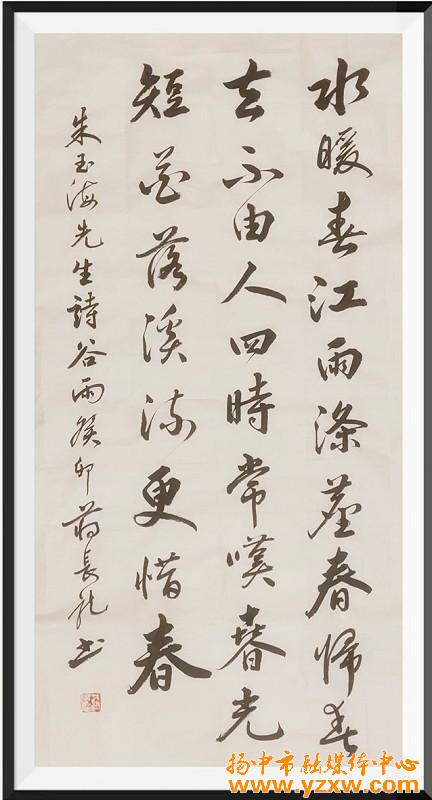 水暖春江雨涤尘春归春
去不由人四時常嘆春光
短花落溪流更惜春
朱玉海先生詩谷雨癸卯蒋長龙书
扬中市融媒体中心
www.yzxw.com